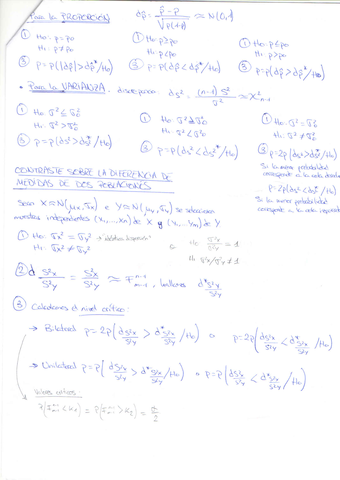 Para la PROPORCIÓN
dp̂ = (p̂ - p) / √(p(1-p)) ≈ N(0,1)
① H₀: p = p₀
H₁: p ≠ p₀
① H₀: p ≥ p₀
H₁: p < p₀
① H₀: p ≤ p₀
H₁: p > p₀
③ p = P(|dp̂| > dp̂*/H₀)
③ p = P(dp̂ < dp̂*/H₀)
③ p = P(dp̂ > dp̂*/H₀)
• Para la VARIANZA: discrepancia ds², (n-1) S² / σ² ≈ χ²ₙ₋₁
① H₀: σ² ≤ σ₀²
H₁: σ² > σ₀²
① H₀: σ² ≥ σ₀²
H₁: σ² < σ₀²
① H₀: σ² = σ₀²
H₁: σ² ≠ σ₀²
③ p = P(ds² > ds²*/H₀)
③ p = P(ds² < ds²*/H₀)
③ p = 2P(ds² > ds²*/H₀)
Si la menor probabilidad
corresponde a la cola derecha
p = 2P(ds² < ds²*/H₀)
Si la menor probabilidad
corresponde a la cola izquierda
CONTRASTE SOBRE LA DIFERENCIA DE
MEDIDAS DE DOS POBLACIONES
Sean X ≈ N(μx, σx) e Y ≈ N(μy, σy) se seleccionan
muestras independientes (x₁, ...xn) de X y (y₁, ...ym) de Y
① H₀: σx² = σy²
H₁: σx² ≠ σy²
o H₀: σ²x/σ²y = 1
H₁: σ²x/σ²y ≠ 1
② d S²x/S²y = S²x/S²y ≈ Fⁿ⁻¹ₘ₋₁, hallamos d* S²x/S²y
③ Calculamos el nivel crítico:
→ Bilateral p = 2P(d S²x/S²y > d* S²x/S²y /H₀) o p = 2P(d S²x/S²y < d* S²x/S²y /H₀)
→ Unilateral p = P(d S²x/S²y > d* S²x/S²y /H₀) o p = P(d S²x/S²y < d* S²x/S²y /H₀)
Valores críticos
P(Fⁿ⁻¹ₘ₋₁ < x₁) = P(Fⁿ⁻¹ₘ₋₁ > x₂) = α/2